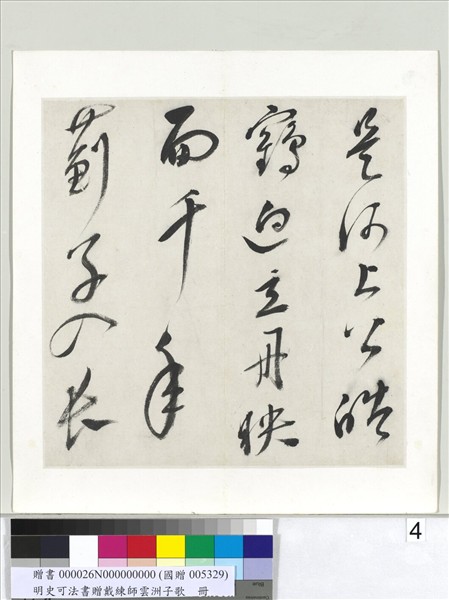 是河上公皓
鶴立丹映
面千年
薊子入長
4
贈書 000026N000000000 (國贈 005329)
明史可法書贈戴練師雲洲子歌 冊